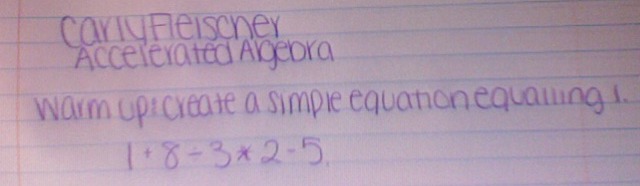 Carly Fleischer
Accelerated Algebra
Warm up: create a simple equation equalling 1.
1 + 8 ÷ 3 * 2 - 5.